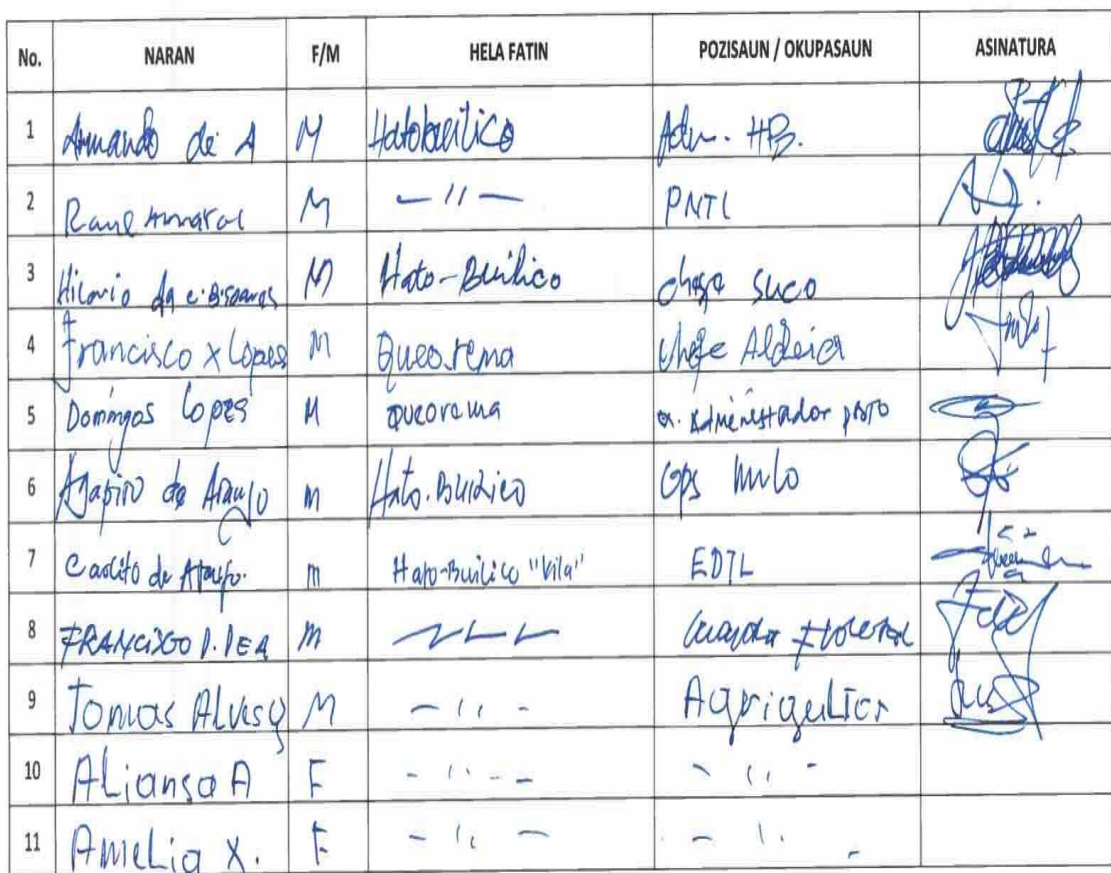 No. NARAN F/M HELA FATIN POZISAUN / OKUPASAUN ASINATURA
1 Armando de A M Hatobuilico Adm. HB.
2 Raul Amaral M — 11 — PNTL
3 Hilario da c. M Hato-Builico chefe suco
4 Francisco x Lopes M Queorema chefe Aldeia
5 Domingos Lopes M queorema Administrador posto
6 Agapito de Araujo m Hato.Builico
7 Carlito de Araujo. m Hato-Builico "Vila" EDTL
8 FRANCIXGO m
9 Tomas M - 11 - Agrigultor
10 Aliansa A F - 11 - - - 11 -
11 Amelia X. F - 11 - - 11 -